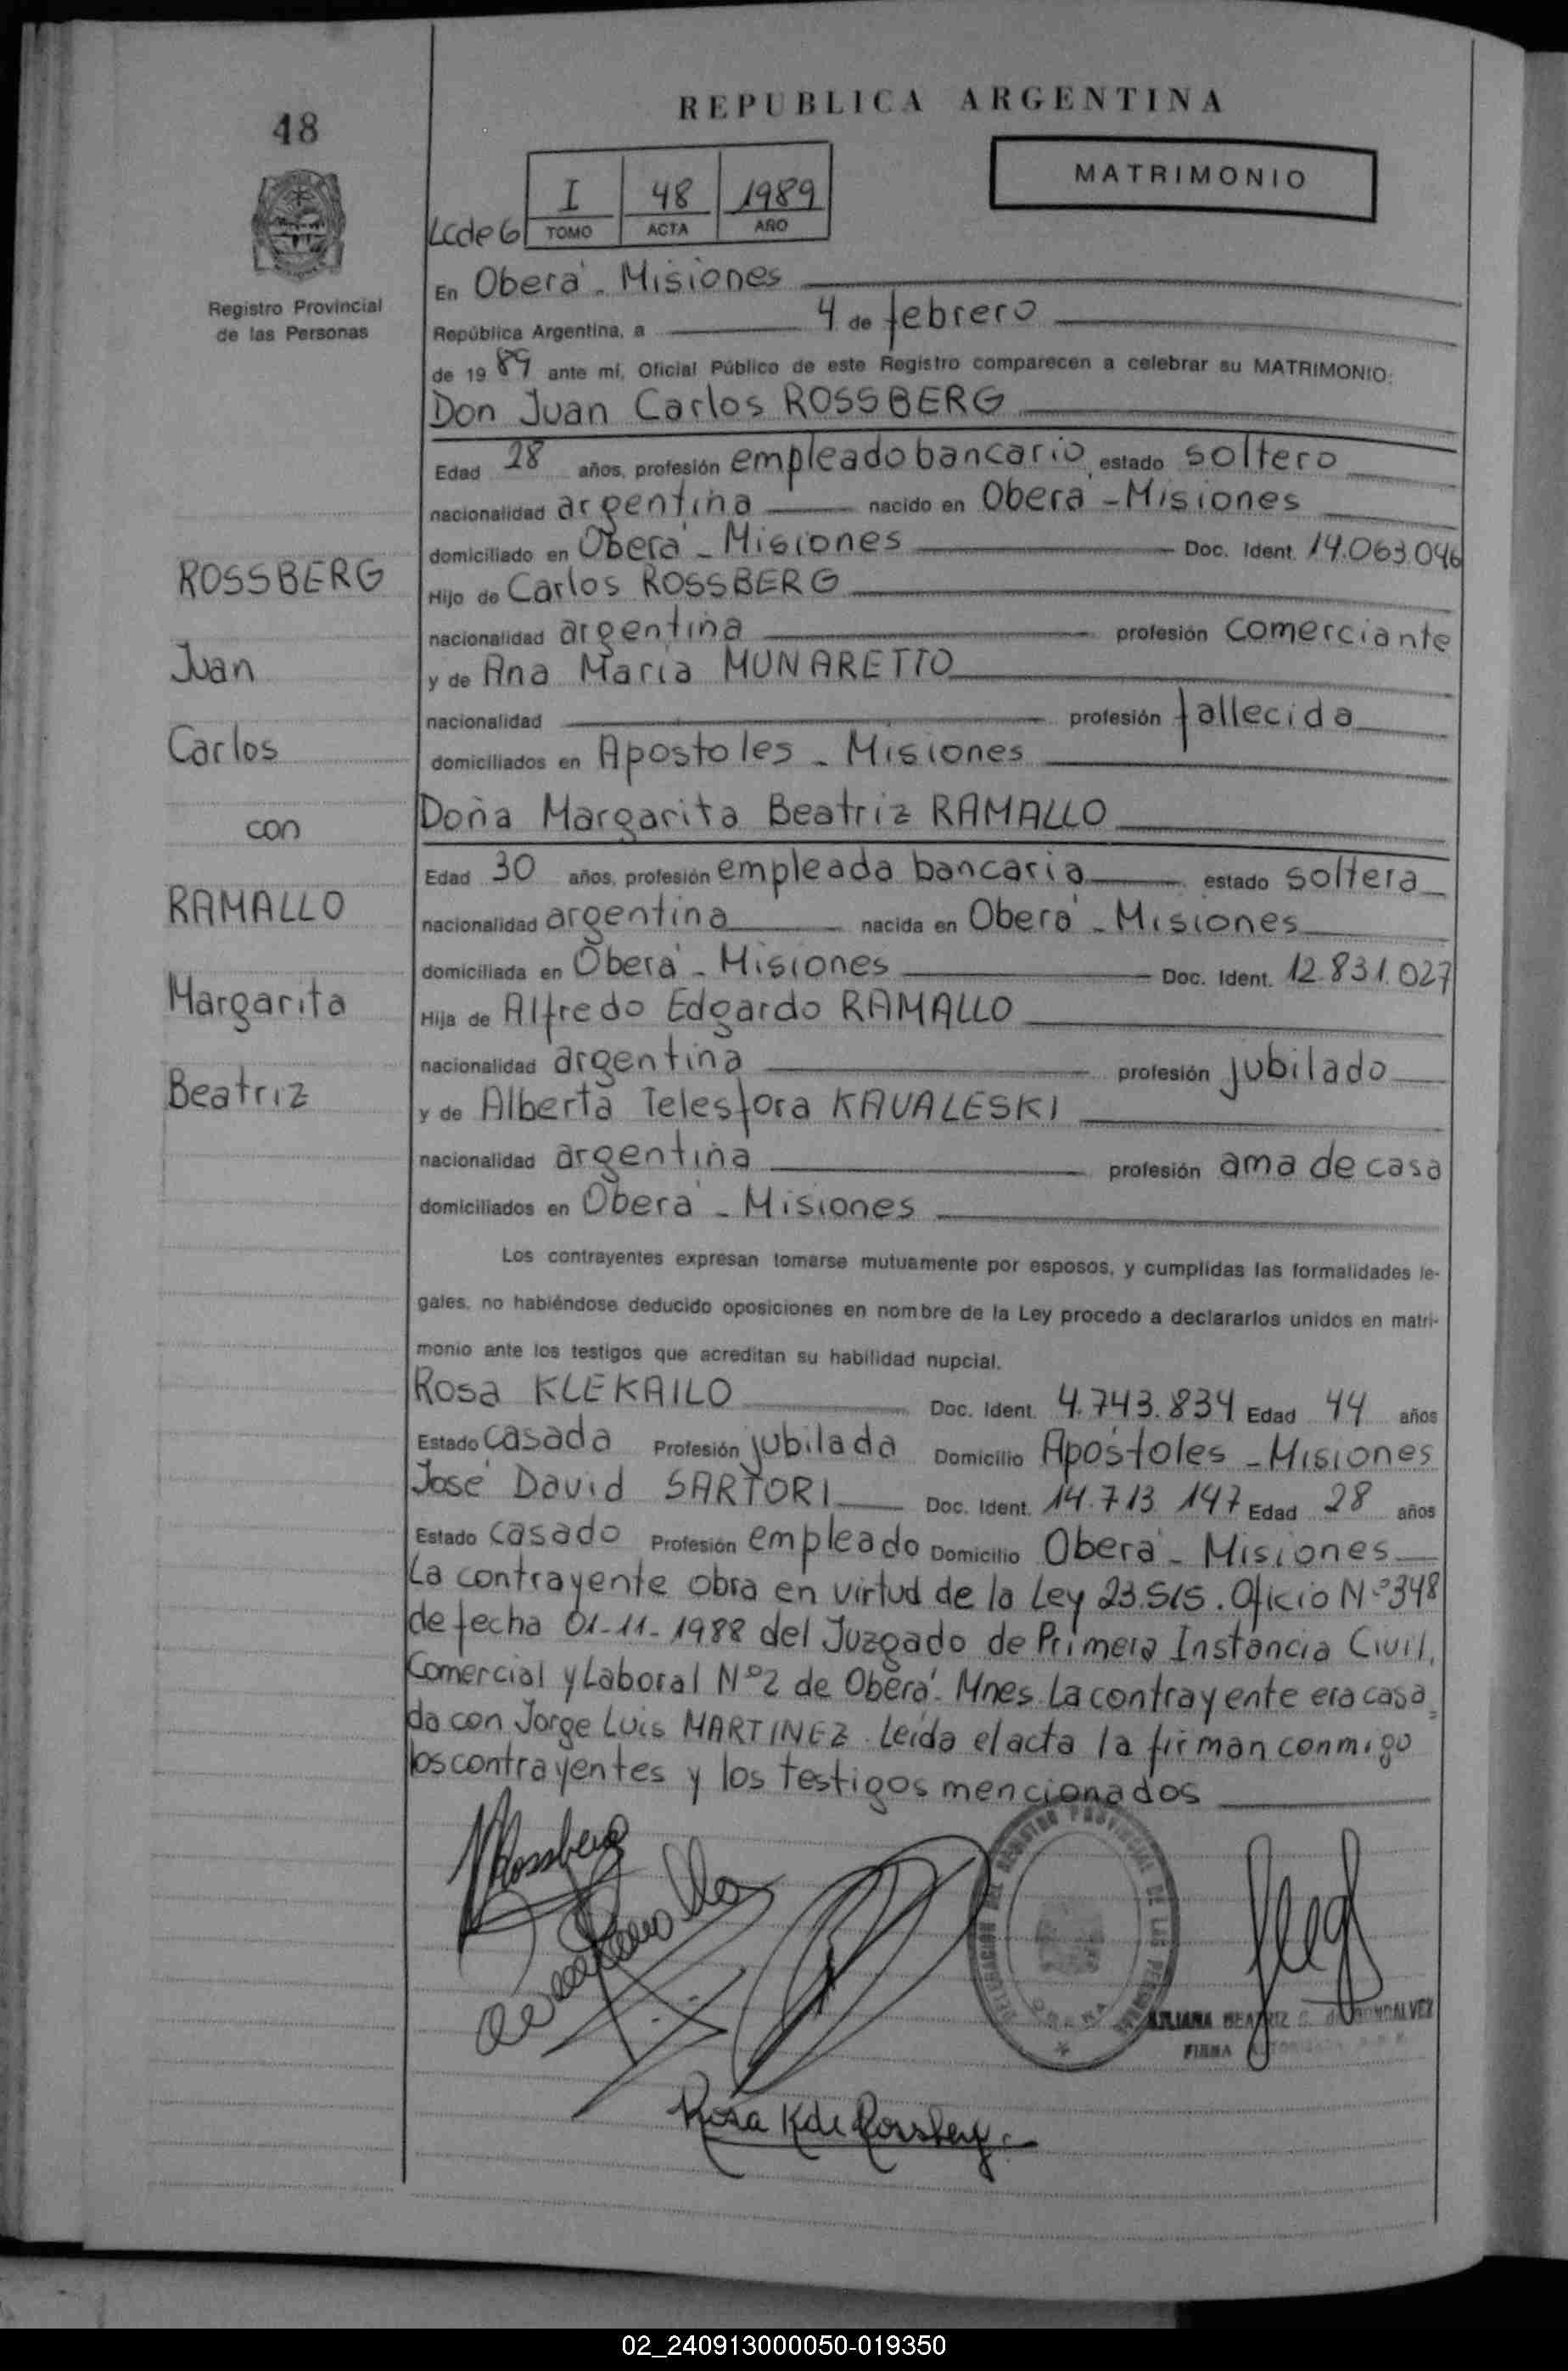 REPUBLICA ARGENTINA
48
MATRIMONIO
I 48 1989
Lcde6 TOMO ACTA AÑO
Registro Provincial
de las Personas
En Oberá - Misiones
República Argentina, a 4 de febrero
de 1989 ante mí, Oficial Público de este Registro comparecen a celebrar su MATRIMONIO:
Don Juan Carlos ROSSBERG
Edad 28 años, profesión empleado bancario, estado soltero
nacionalidad argentina nacido en Oberá - Misiones
domiciliado en Oberá - Misiones Doc. Ident. 14.063.046
Hijo de Carlos ROSSBERG
nacionalidad argentina profesión comerciante
y de Ana María MUNARETTO
nacionalidad profesión fallecida
domiciliados en Apostoles - Misiones
Doña Margarita Beatriz RAMALLO
Edad 30 años, profesión empleada bancaria estado soltera
nacionalidad argentina nacida en Oberá - Misiones
domiciliada en Oberá - Misiones Doc. Ident. 12.831.027
Hija de Alfredo Edgardo RAMALLO
nacionalidad argentina profesión jubilado
y de Alberta Telesfora KAVALESKI
nacionalidad argentina profesión ama de casa
domiciliados en Oberá - Misiones
ROSSBERG
Juan
Carlos
con
RAMALLO
Margarita
Beatriz
Los contrayentes expresan tomarse mutuamente por esposos, y cumplidas las formalidades le-
gales, no habiéndose deducido oposiciones en nombre de la Ley procedo a declararlos unidos en matri-
monio ante los testigos que acreditan su habilidad nupcial.
Rosa KLEKAILO Doc. Ident. 4.743.834 Edad 44 años
Estado casada Profesión jubilada Domicilio Apóstoles - Misiones
José David SARTORI Doc. Ident. 14.713.147 Edad 28 años
Estado casado Profesión empleado Domicilio Oberá - Misiones
La contrayente obra en virtud de la Ley 23.515. Oficio Nº 348
de fecha 01-11-1988 del Juzgado de Primera Instancia Civil,
Comercial y Laboral Nº 2 de Oberá - Mnes. La contrayente era casa=
da con Jorge Luis MARTINEZ. Leída el acta la firman conmigo
los contrayentes y los testigos mencionados
Rossberg
DELEGACION DEL REGISTRO PROVINCIAL DE LAS PERSONAS
OBERA
BEATRIZ GONCALVEZ
FIRMA
Rosa K de Rossberg
02_240913000050-019350